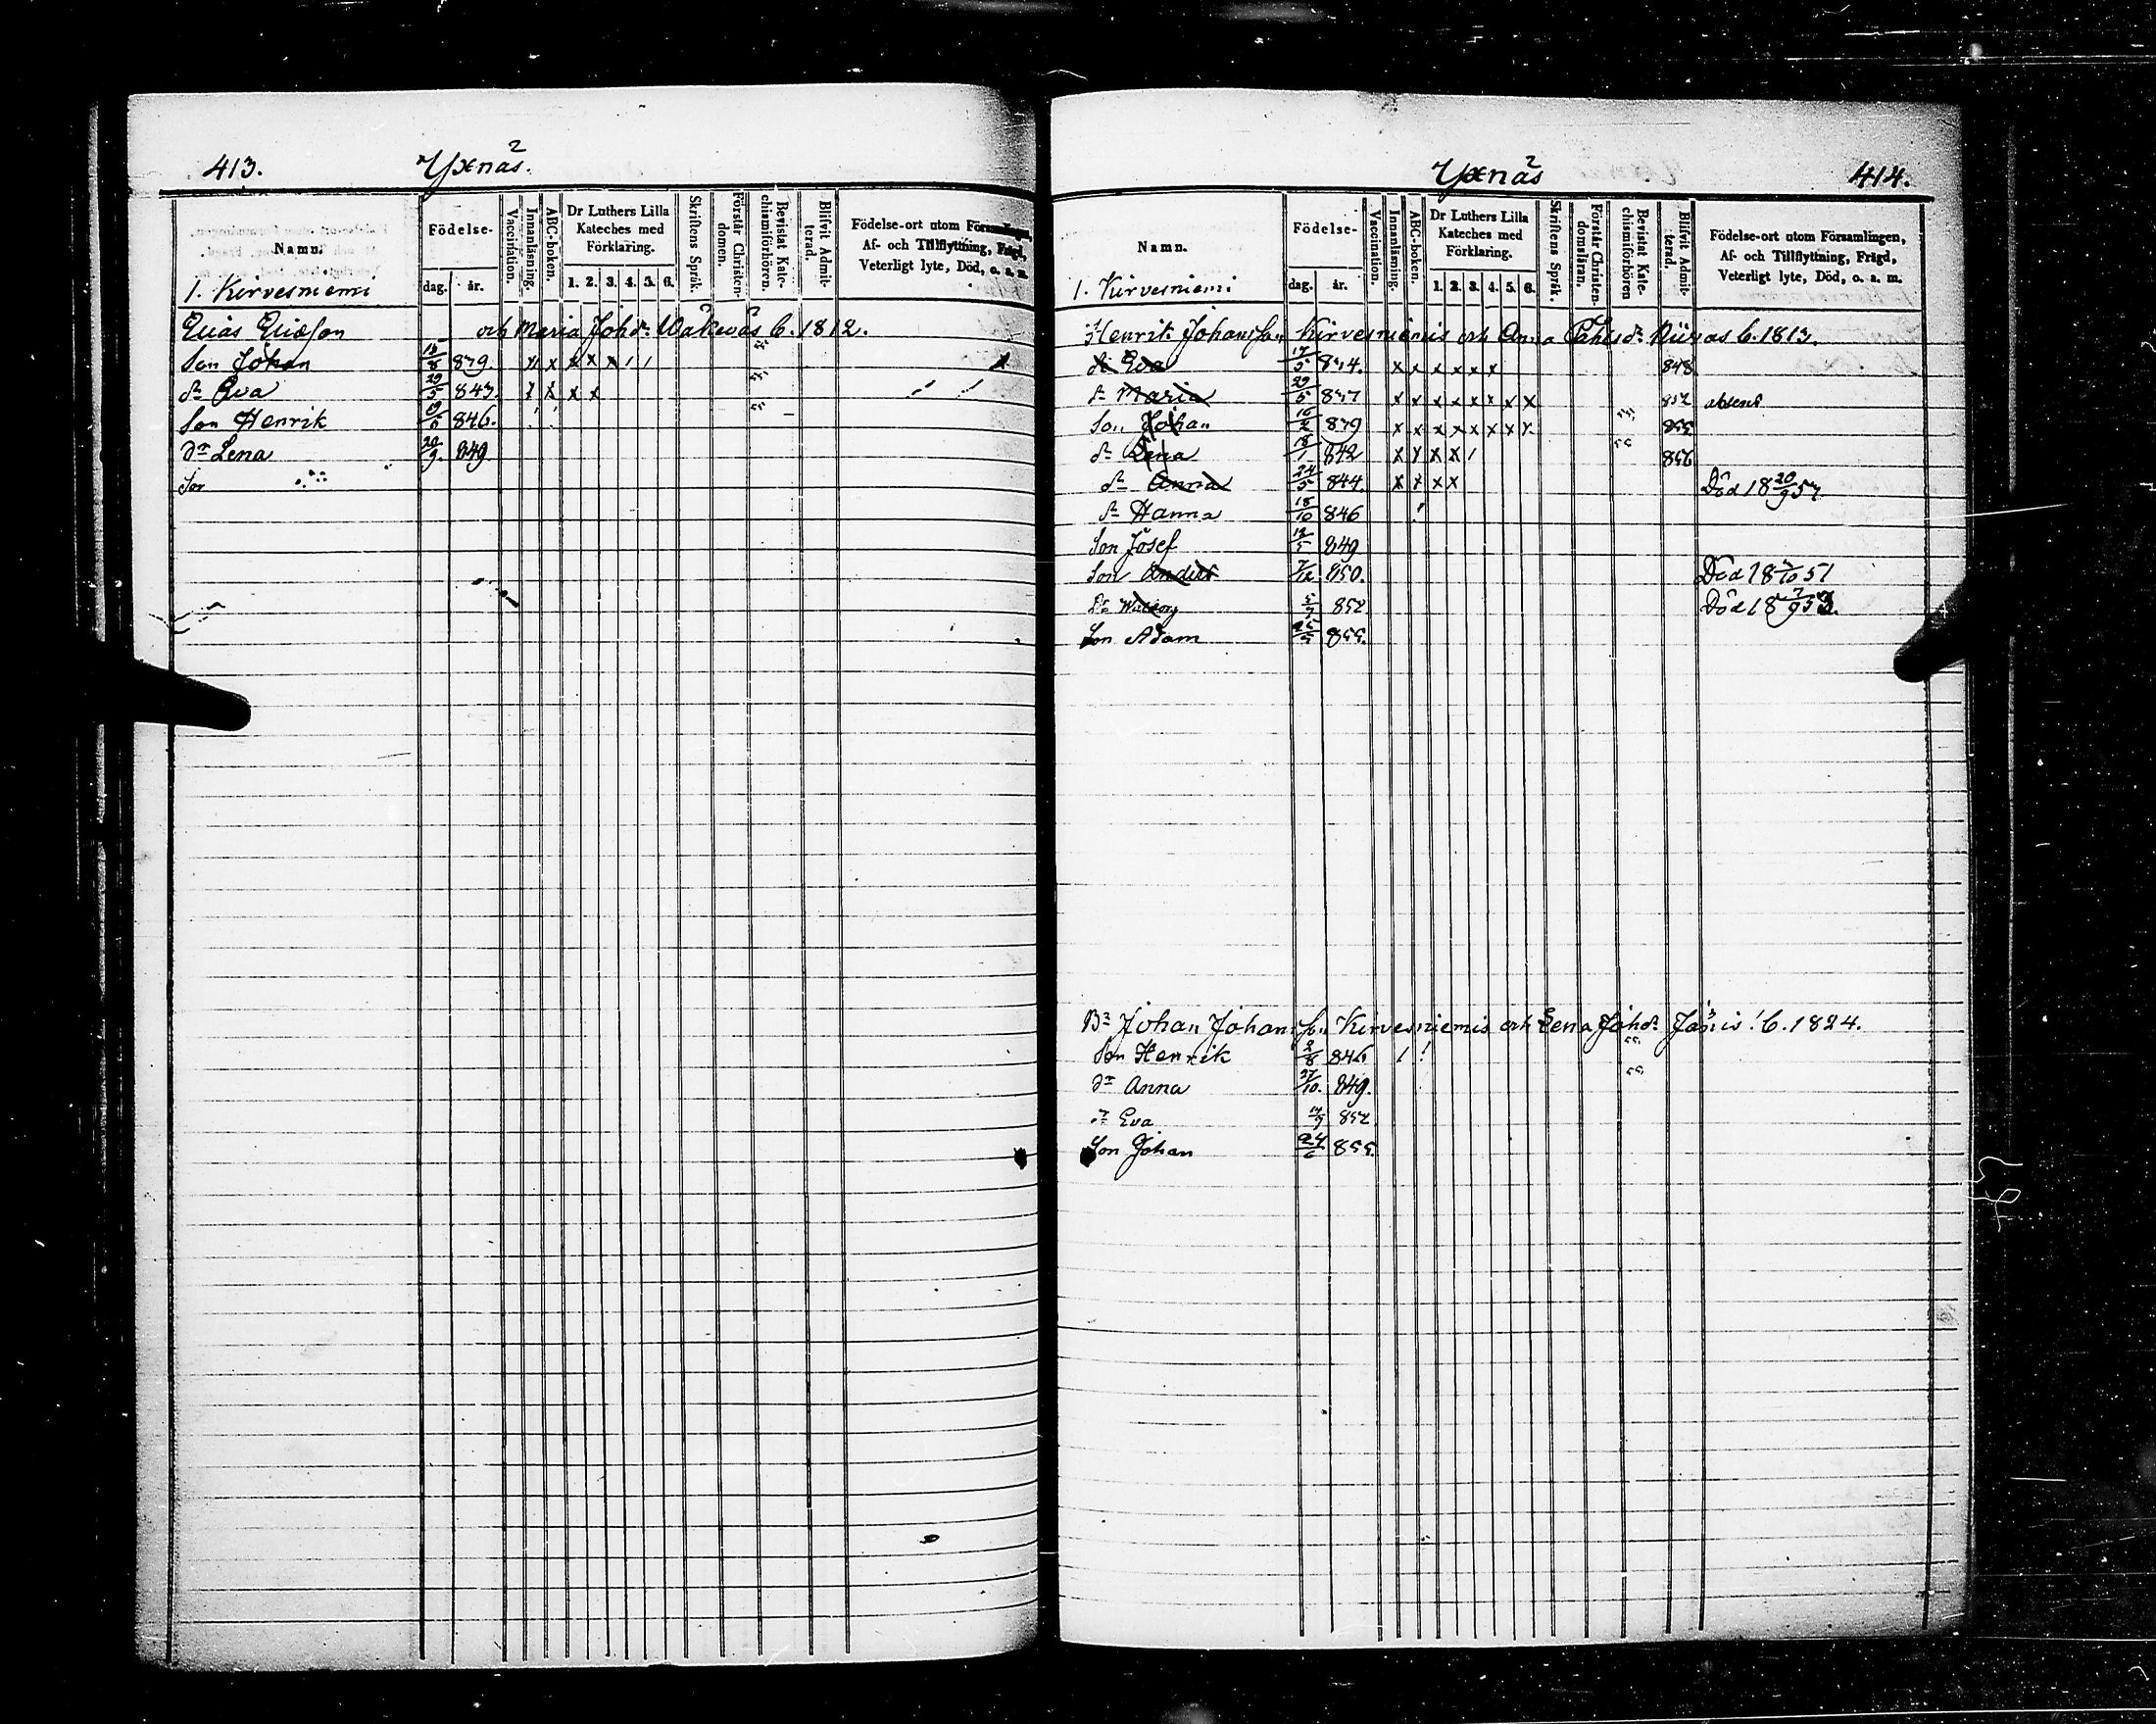 413. Yxnäs. 2
Namn.
Födelse-
dag. år.
Vaccination.
Innanläsning.
ABC-boken.
Dr Luthers Lilla Kateches med Förklaring.
1. 2. 3. 4. 5. 6.
Skriftens Språk.
Förstår Christendomen.
Bevistat Katechismiförhören.
Blifvit Admitterad.
Födelse-ort utom Församlingen,
Af- och Tillflyttning, Frägd,
Veterligt lyte, Död, o. a. m.
1. Kirvesniemi
Elias Eliæson och Maria Johdr 1812.
Son Johan 839. x x x x x 1 1
dr Eva 29/5 843. x x x x
Son Henrik 846.
dr Lena 20/9. 849
Son
Yxnäs 2 414.
Namn.
Födelse-
dag. år.
Vaccination.
Innanläsning.
ABC-boken.
Dr Luthers Lilla Kateches med Förklaring.
1. 2. 3. 4. 5. 6.
Skriftens Språk.
Förstår Christendomsläran.
Bevistat Katechismiförhören
Blifvit Admitterad.
Födelse-ort utom Församlingen,
Af- och Tillflyttning, Frägd,
Veterligt lyte, Död, o. a. m.
1. Kirvesniemi
Henrik Johansson Kirvesniemis och Anna 1813.
dr Eva 17/5 834. x x x x x x 848
dr Maria 29/5 837 x x x x x x x x 852 absens
Son Johan 16/2 839 x x x x x x x x 55 855
dr Lena 18/1 842 x x x x 1 55 856
dr Anna 24/5 844. x x x x Död 18 20/9 57
dr Hanna 18/10 846
Son Josef 12/5 849
Son Anders 7/12 850. Död 18 /10 51
Dr 852 Död 18 7/9 53.
Son Adam 855.
Br Johan Johansson Kirvesniemis och Lena Johdr 1824.
Son Henrik 2/8 846 55
dr Anna 27/10. 849. 55
dr Eva 852
Son Johan 24/6 855.